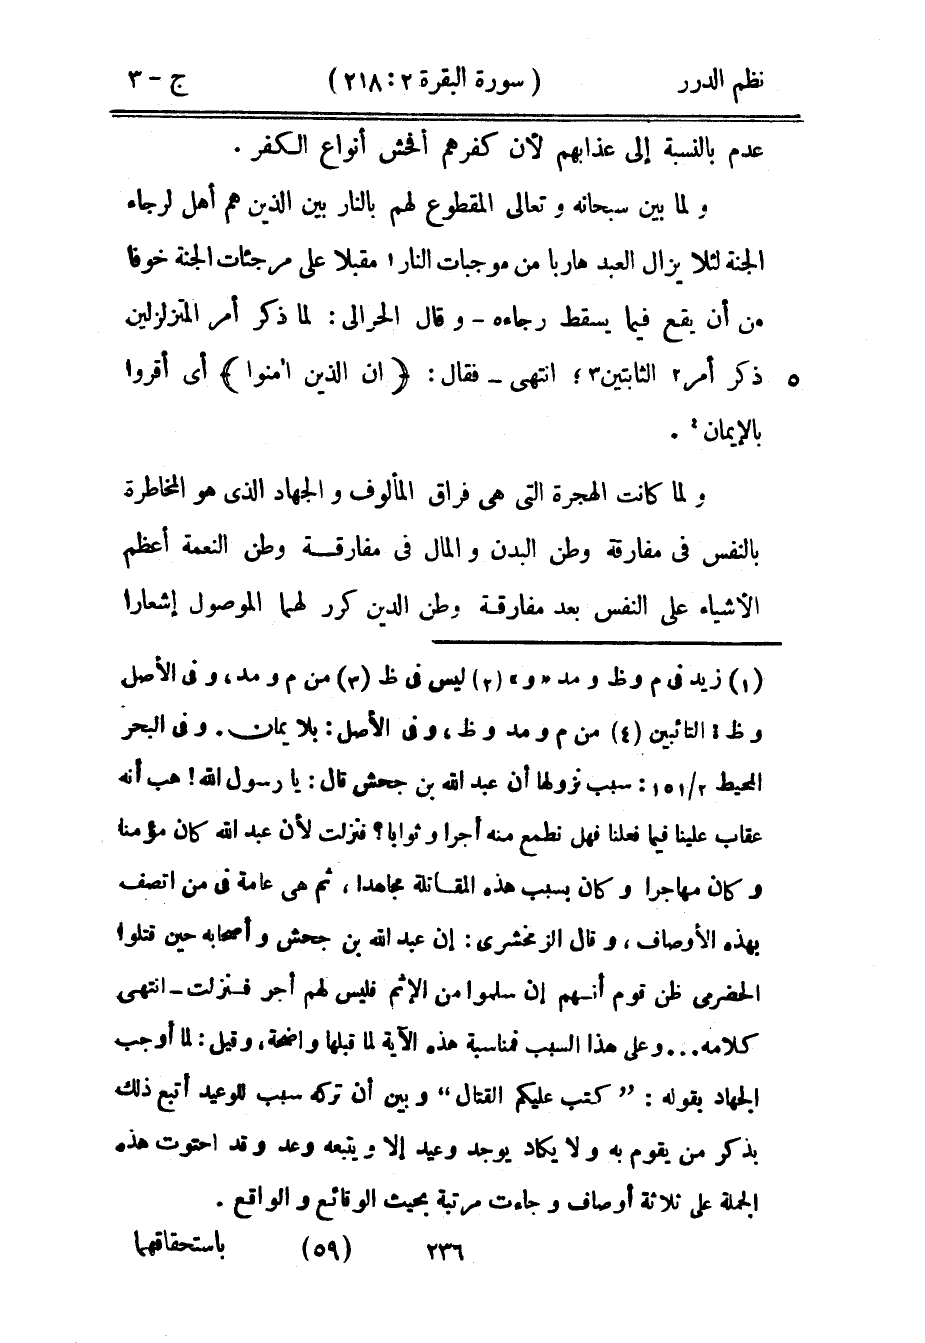 نظم الدرر ( سورة البقرة ٢ : ٢١٨ ) ج – ٣
عدم بالنسبة إلى عذابهم لأن كفرهم أفحش أنواع الكفر .
و لما بين سبحانه و تعالى المقطوع لهم بالنار بين الذين هم أهل لرجاء
الجنة لئلا يزال العبد هاربا من موجبات النار١ مقبلا على مرجئات الجنة خوفا
من أن يقع فيما يسقط رجاءه – و قال الحرالى : لما ذكر أمر المتزلزلين
٥ ذكر أمر٢ الثابتين٣ ؛ انتهى – فقال : ﴿ ان الذين اٰمنوا ﴾ أى أقروا
بالإيمان٤ .
و لما كانت الهجرة التى هى فراق المألوف و الجهاد الذى هو المخاطرة
بالنفس فى مفارقة وطن البدن و المال فى مفارقـة وطن النعمة أعظم
الأشياء على النفس بعد مفارقة وطن الدين كرر لهما الموصول إشعارا
(١) زيد فى م و ظ و مد «و» (٢) ليس فى ظ (٣) من م و مد ، و فى الأصل
و ظ : التائبين (٤) من م و مد و ظ ، و فى الأصل : بلا يمان . و فى البحر
المحيط ٢/١٥١ : سبب نزولها أن عبد الله بن جحش قال : يا رسول الله ! هب أنه
عقاب علينا فيما فعلنا فهل نطمع منه أجرا و ثوابا ؟ فنزلت لأن عبد الله كان مؤمنا
و كان مهاجرا و كان بسبب هذه المقاتلة مجاهدا ، ثم هى عامة فى من اتصف
بهذه الأوصاف ، و قال الزمخشرى : إن عبد الله بن جحش و أصحابه حين قتلوا
الحضرمى ظن قوم أنـهم إن سلموا من الإثم فليس لهم أجر فـنزلت – انتهى
كلامه ... و على هذا السبب فمناسبة هذه الآية لما قبلها واضحة ، و قيل : لما أوجب
الجهاد بقوله : ” كتب عليكم القتال “ و بين أن تركه سبب للوعيد أتبع ذلك
بذكر من يقوم به و لا يكاد يوجد وعيد إلا و يتبعه وعد و قد احتوت هذه
الجملة على ثلاثة أوصاف و جاءت مرتبة بحيث الوقائع و الواقع .
٢٣٦ (٥٩) باستحقاقهما